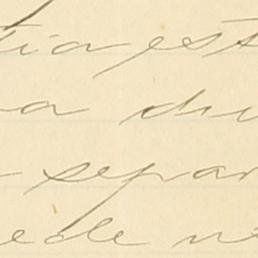 tia est
a du
separ
ede n